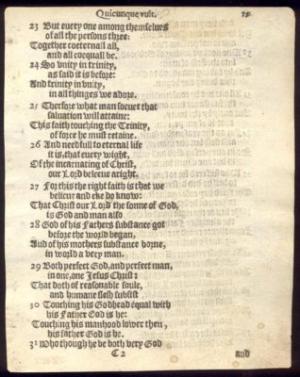 Quicunque vult.
23 But euery one among themselues
of all the persons three:
Together coeternall all,
and all coequall be.
24 So vnity in trinity,
as said it is before:
And trinity in vnity,
in all thinges we adore.
25 Therfore what man soeuer that
saluation will attaine:
This faith touching the Trinity,
of force he must retaine.
26 And needfull to eternall life
it is, that euery wight,
Of the incarnating of Christ,
our Lord beleeue aright.
27 For this the right faith is that we
beleeue and eke do know:
That Christ our Lord the sonne of God,
is God and man also
28 God of his Fathers substance got
before the world began,
And of his mothers substance borne,
in world a very man.
29 Both perfect God, and perfect man,
in one, one Jesus Christ:
That doth of reasonable soule,
and humane flesh subsist
30 Touching his Godhead equal with
his Father God is he:
Touching his manhood lower then,
his father God is he.
31 Who though he be both very God
C 2 and